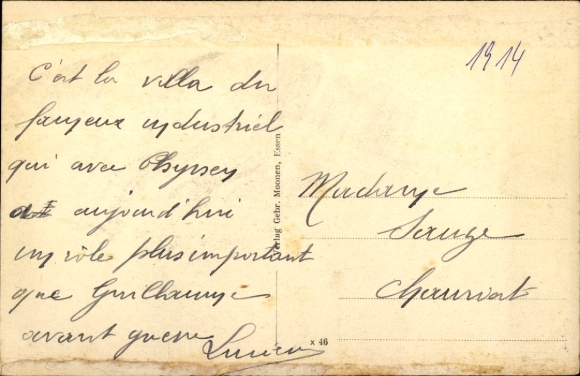 C'est la villa du
fameux industriel
qui avec Thyssen
a aujourd'hui
un rôle plus important
que Guillaume
avant guerre
Lucien
Verlag Gebr. Moonen, Essen
x 46
1914
Madame
Sauze
Chauriat